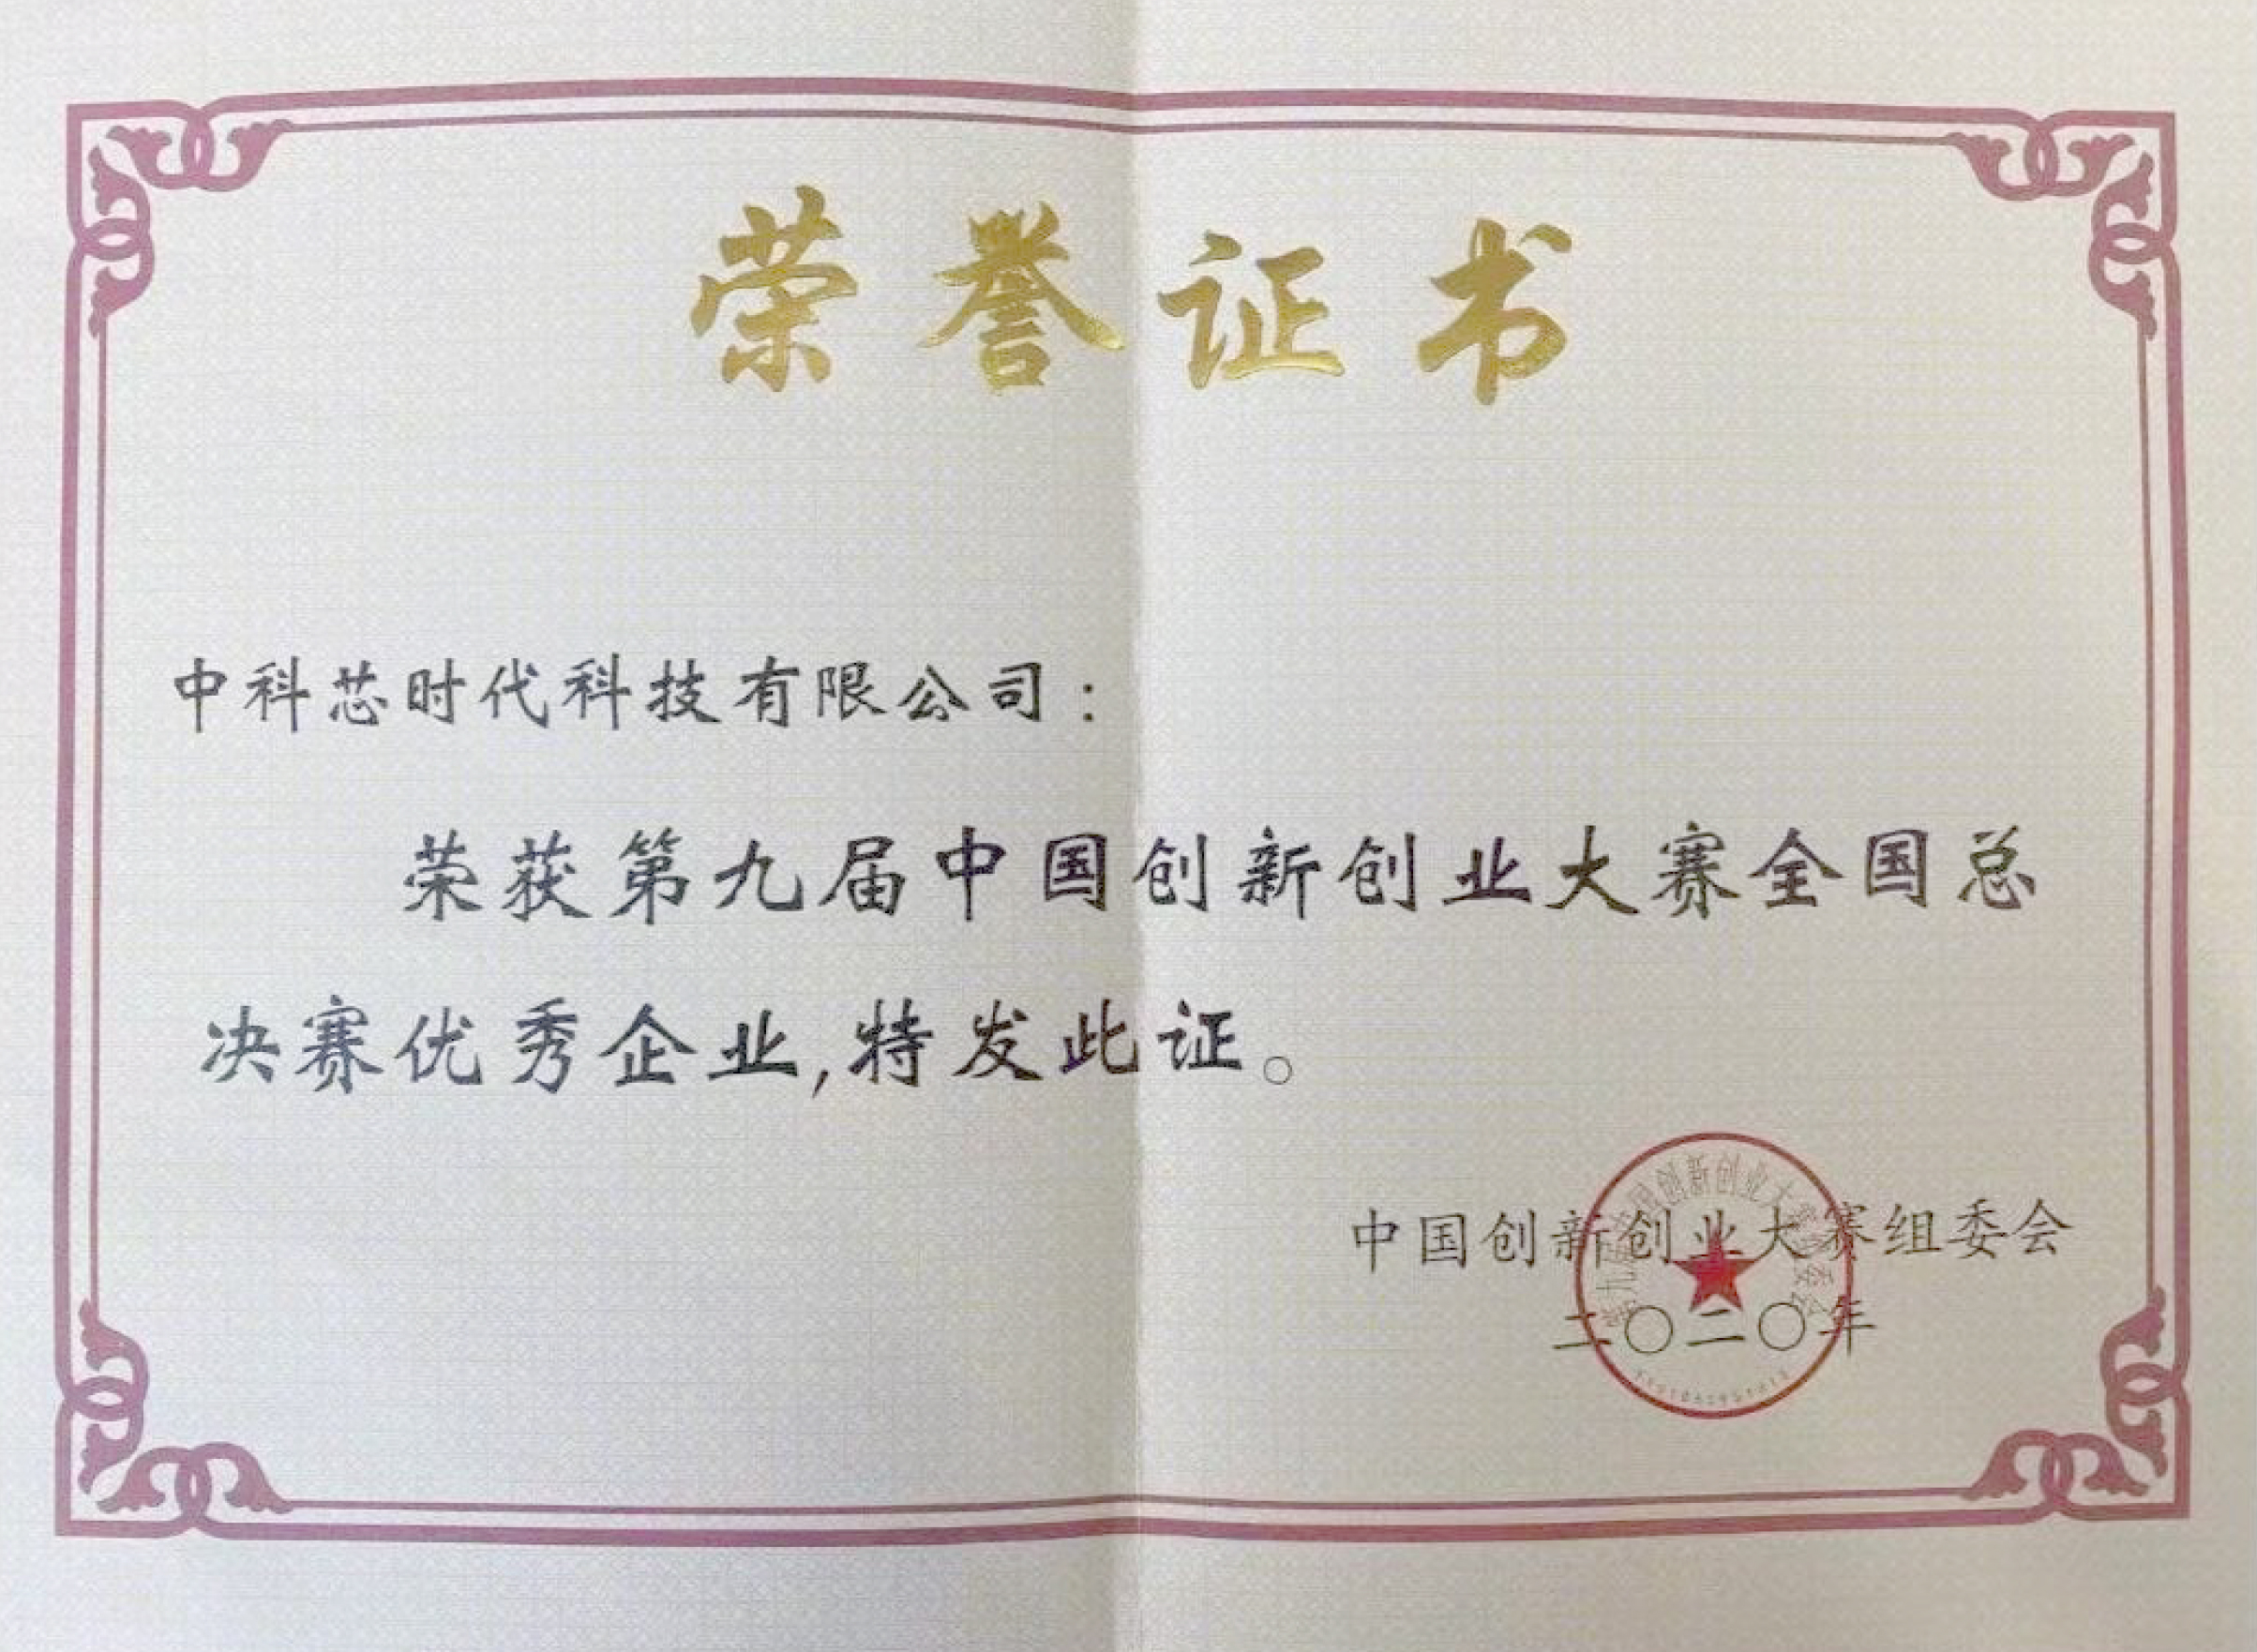 荣誉证书
中科芯时代科技有限公司：
荣获第九届中国创新创业大赛全国总
决赛优秀企业,特发此证。
中国创新创业大赛组委会
二〇二〇年